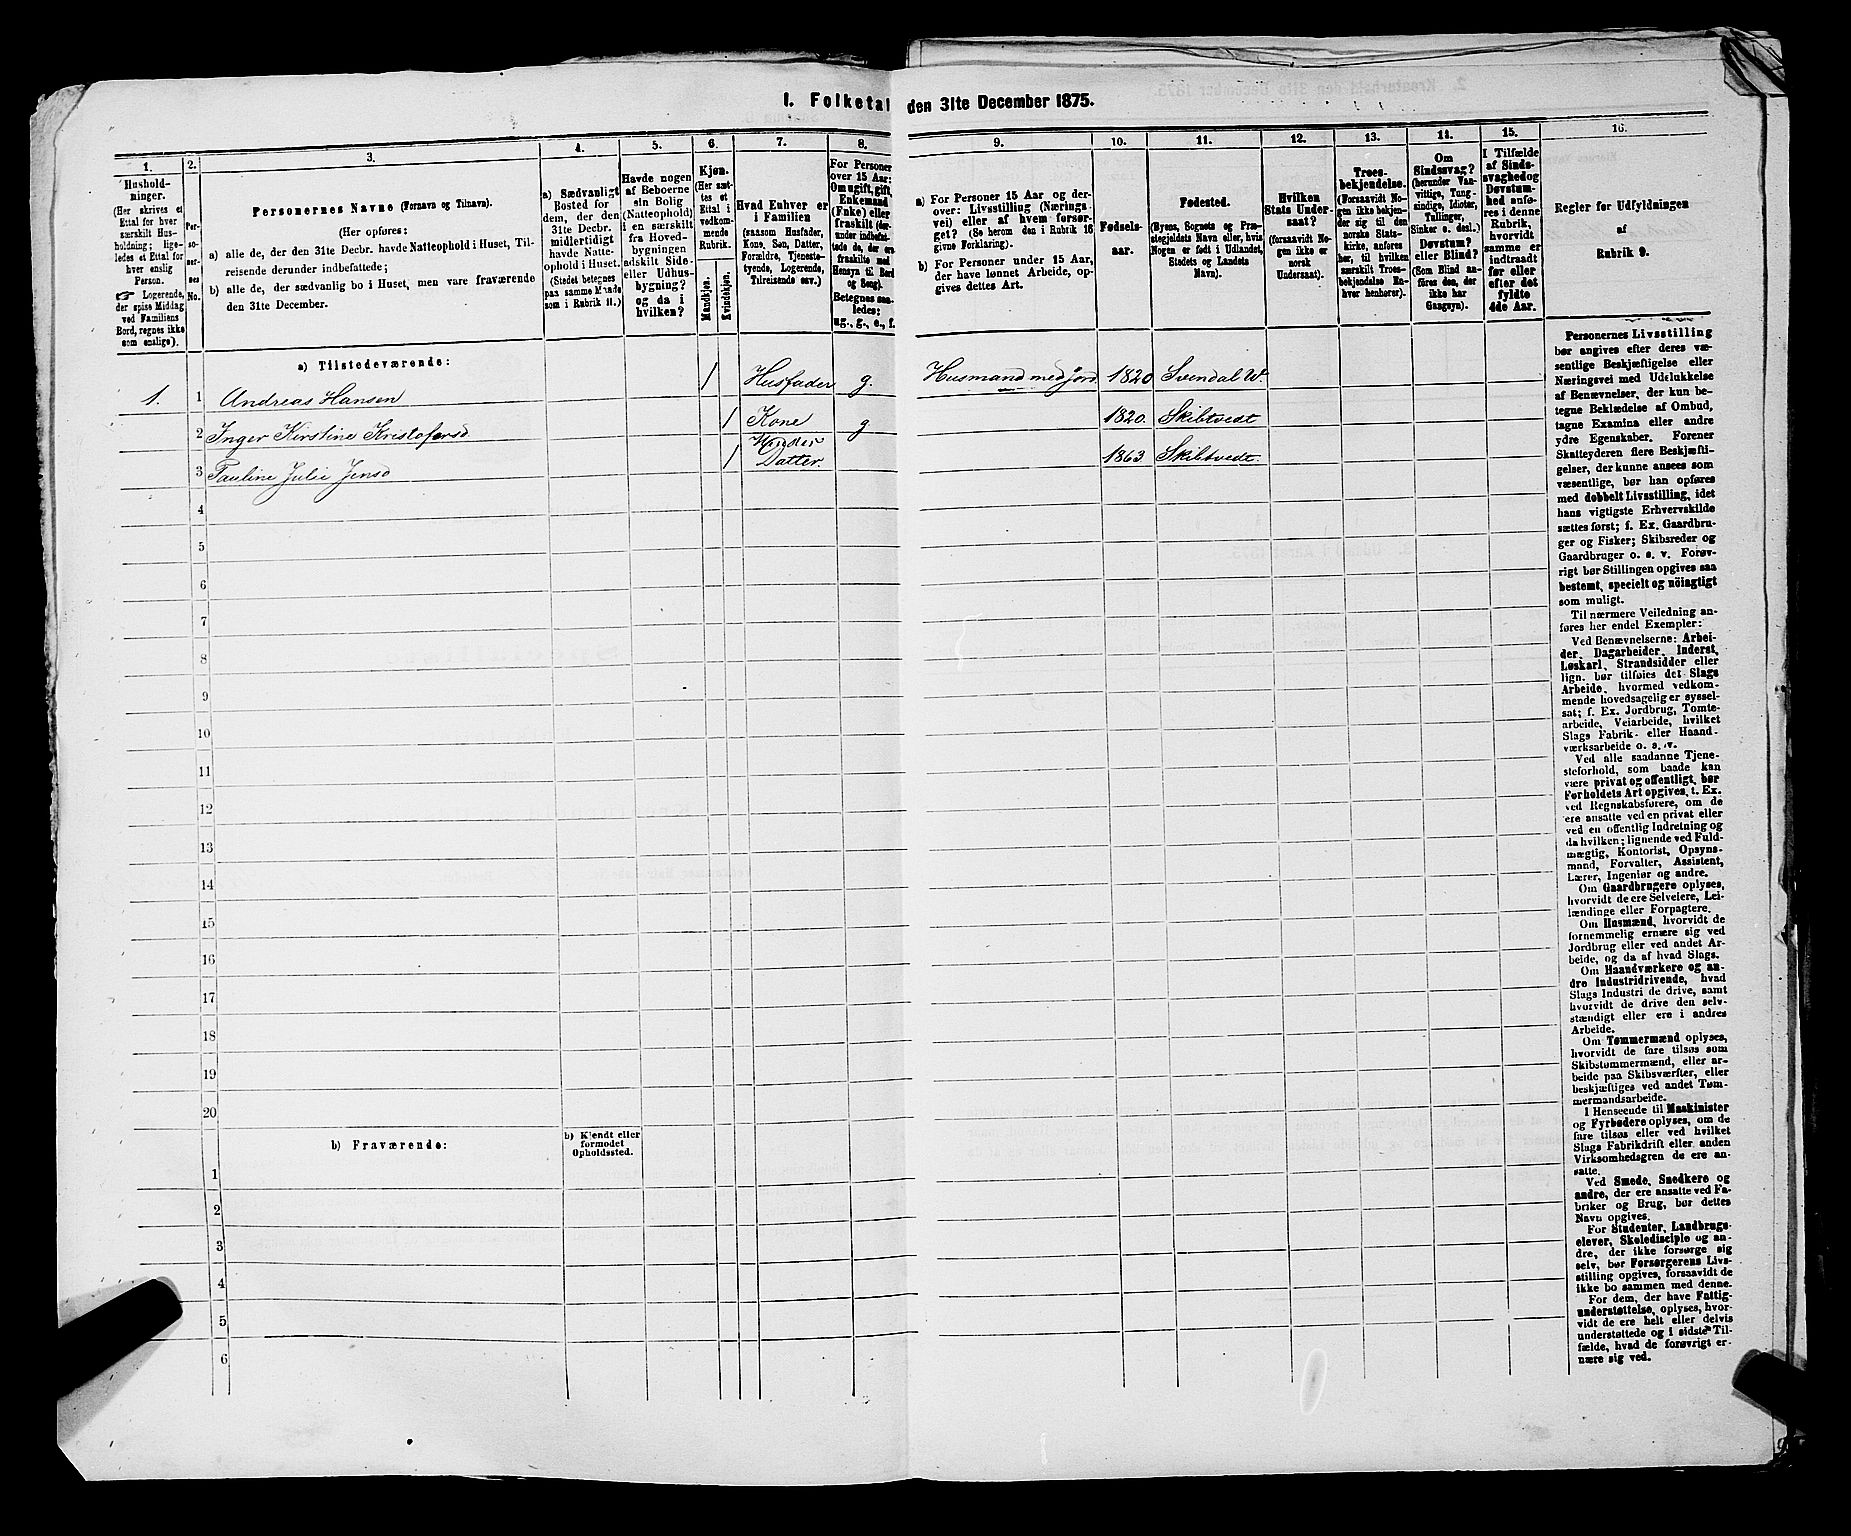 1. Folketal den 31te December 1875.
1.
Hushold-
ninger.
(Her skrives et
Ettal for hver
særskilt Hus-
holdning; lige-
ledes et Ettal for
hver enslig
Person.
☞ Logerende,
der spise Middag
ved Familiens
Bord, regnes ikke
som enslige).
2.
Per-
so-
ner-
nes
No.
3.
Personernes Navne (Fornavn og Tilnavn).
(Her opføres:
a) alle de, der den 31te Decbr. havde Natteophold i Huset, Til-
reisende derunder indbefattede;
b) alle de, der sædvanlig bo i Huset, men vare fraværende
den 31te December.
4.
a) Sædvanligt
Bosted for
dem, der den
31te Decbr.
midlertidigt
havde Natte-
ophold i Huset.
(Stedet betegnes
paa samme Maade
som i Rubrik 11.)
5.
Havde nogen
af Beboerne
sin Bolig
(Natteophold)
i en særskilt
fra Hoved-
bygningen
adskilt Side-
eller Udhus-
bygning?
og da i
hvilken?
6.
Kjøn.
(Her sæt-
tes et
Ettal i
vedkom-
mende
Rubrik.
Mandkjøn.
Kvindekjøn.
7.
Hvad Enhver er
i Familien
(saasom Husfader,
Kone, Søn, Datter,
Forældre, Tjeneste-
tyende, Logerende,
Tilreisende osv.)
8.
For Personer
over 15 Aar:
Om ugift, gift,
Enkemand
(Enke) eller
fraskilt (der-
under indbefat-
tede de, der ere
fraskilte med
Hensyn til Bord
og Seng).
Betegnes saa-
ledes:
ug., g., e., f.
9.
a) For Personer 15 Aar og der-
over: Livsstilling (Nærings-
vei) eller af hvem forsør-
get? (Se herom den i Rubrik 16
givne Forklaring).
b) For Personer under 15 Aar,
der have lønnet Arbeide, op-
gives dettes Art.
10.
Fødsels-
aar.
11.
Fødested.
(Byens, Sognets og Præ-
stegjeldets Navn eller, hvis
Nogen er født i Udlandet,
Stedets og Landets
Navn).
12.
Hvilken
Stats Under-
saat?
(forsaavidt No-
gen ikke er
norsk
Undersaat).
13.
Troes-
bekjendelse.
(Forsaavidt No-
gen ikke bekjen-
der sig til den
norske Stats-
kirke, anføres
her, til hvilken
særskilt Troes-
bekjendelse En-
hver henhører).
14.
Om
Sindssvag?
(herunder Van-
vittige, Tung-
sindige, Idioter,
Tullinger,
Sinker o. desl.)
Døvstum?
eller Blind?
(Som Blind an-
føres den, der
ikke har
Gangsyn).
15.
I Tilfælde
af Sinds-
svaghed og
Døvstum-
hed anfø-
res i denne
Rubrik,
hvorvidt
samme er
indtraadt
før eller
efter det
fyldte
4de Aar.
16.
Regler for Udfyldningen
af
Rubrik 9.
a) Tilstedeværende:
1. 1 Andreas Hansen 1 Husfader g. Husmand med jord 1820 Svendal W.
2 Inger Kirstine Kristofersd 1 Kone g 1820. Skibtvedt
3 Pauline Julie Jensd 1 Datter. 1863 Skibtvedt.
4
5
6
7
8
9
10
11
12
13
14
15
16
17
18
19
20
b) Fraværende:
b) Kjendt eller
formodet
Opholdssted.
1
2
3
4
5
6
Personernes Livsstilling
bør angives efter deres væ-
sentlige Beskjæftigelse eller
Næringsvei med Udelukkelse
af Benævnelser, der kun be-
tegne Beklædelse af Ombud,
tagne Examina eller andre
ydre Egenskaber. Forener
Skatteyderen flere Beskjæfti-
gelser, der kunne ansees som
væsentlige, bør han opføres
med dobbelt Livsstilling, idet
hans vigtigste Erhvervskilde
sættes først; f. Ex. Gaardbru-
ger og Fisker; Skibsreder og
Gaardbruger o. s. v. Forøv-
rigt bør Stillingen opgives saa
bestemt, specielt og nöiagtigt
som muligt.
Til nærmere Veiledning an-
føres her endel Exempler:
Ved Benævnelserne: Arbei-
der, Dagarbeider, Inderst,
Løskarl, Strandsidder eller
lign. bør tilføies det Slags
Arbeide, hvormed vedkom-
mende hovedsagelig er syssel-
sat; f. Ex. Jordbrug, Tomte-
arbeide, Veiarbeide, hvilket
Slags Fabrik- eller Haand-
værksarbeide o. s. v.
Ved alle saadanne Tjene-
steforhold, som baade kan
være privat og offentligt, bør
Forholdets Art opgives, f. Ex.
ved Regnskabsførere, om de
ere ansatte ved en privat eller
ved en offentlig Indretning og
da hvilken; lignende ved Fuld-
mægtig, Kontorist, Opsyns-
mand, Forvalter, Assistent,
Lærer, Ingeniør og andre.
Om Gaardbrugere oplyses,
hvorvidt de ere Selveiere, Lei-
lændinge eller Forpagtere.
Om Husmænd, hvorvidt de
fornemmelig ernære sig ved
Jordbrug eller ved andet Ar-
beide, og da af hvad Slags.
Om Haandværkere og an-
dre Industridrivende, hvad
Slags Industri de drive, samt
hvorvidt de drive den selv-
stændigt eller ere i andres
Arbeide.
Om Tømmermænd oplyses,
hvorvidt de fare tilsøs som
Skibstømmermænd, eller ar-
beide paa Skibsværfter, eller
beskjæftiges ved andet Tøm-
mermandsarbeide.
I Henseende til Maskinister
og Fyrbødere oplyses, om de
fare tilsøs eller ved hvilket
Slags Fabrikdrift eller anden
Virksomhedsgren de ere an-
satte.
Ved Smede, Snedkere og
andre, der ere ansatte ved Fa-
briker og Brug, bør dettes
Navn opgives.
For Studenter, Landbrugs-
elever, Skoledisciple og an-
dre, der ikke forsørge sig
selv, bør Forsørgerens Livs-
stilling opgives, forsaavidt de
ikke bo sammen med denne.
For dem, der have Fattig-
understøttelse, oplyses, hvor-
vidt de ere helt eller delvis
understøttede og i sidste Til-
fælde, hvad de forøvrigt er-
nære sig ved.